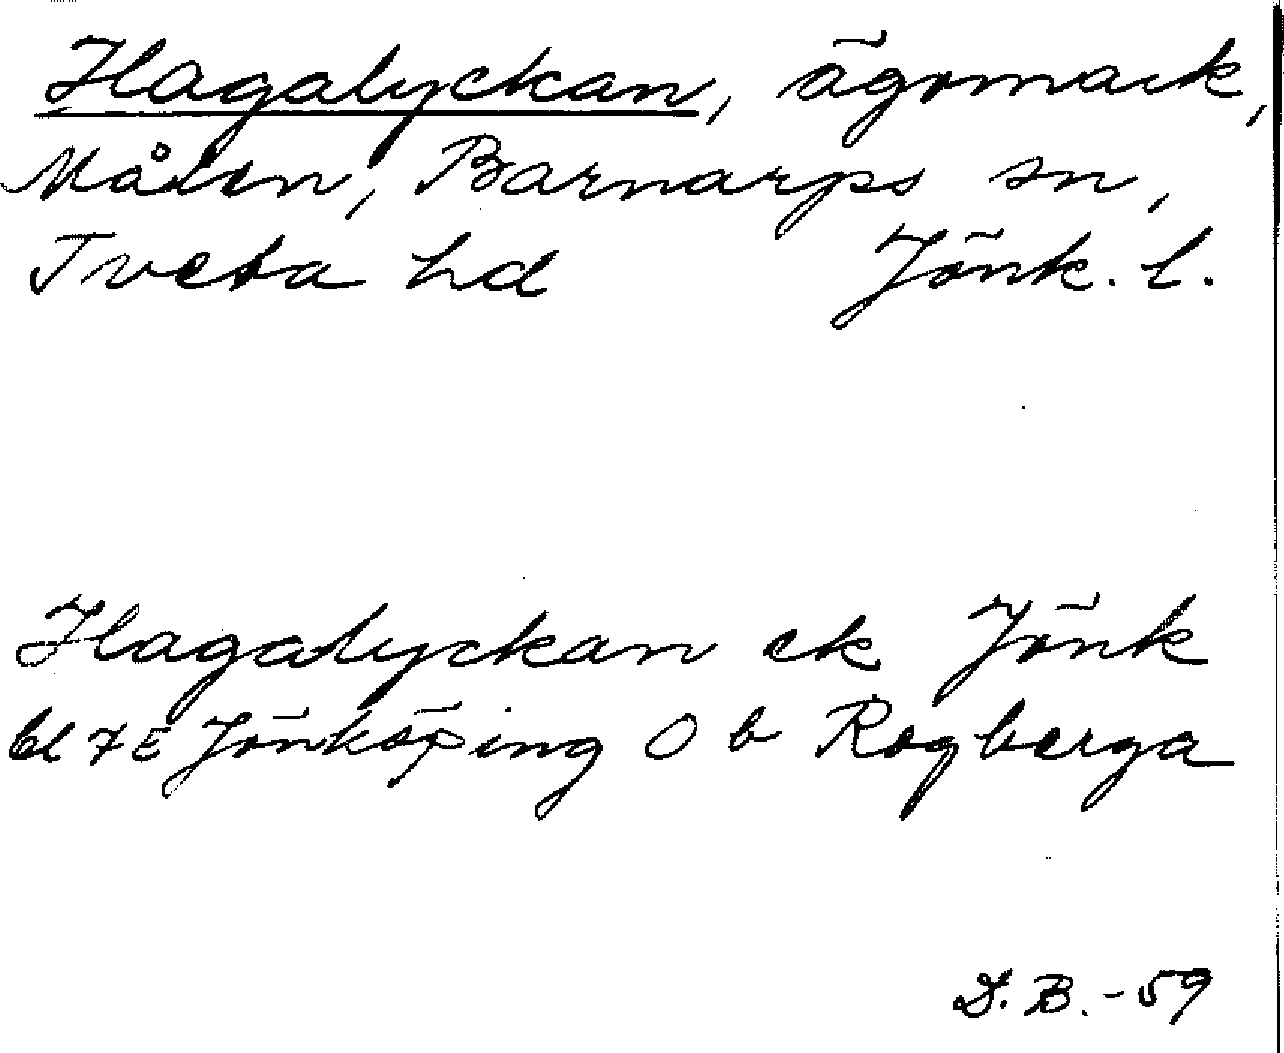 Hagalyckan, ägomark,
Målen, Barnarps sn,
Tveta hd Jönk. l.
Hagalyckan ek Jönk
bl 7E Jönköping O b Rogberga
D. B. - 59